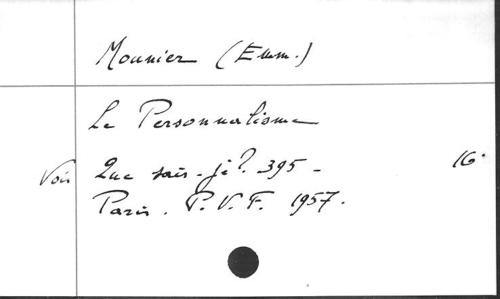 Mounier (Emm.)
Le Personnalisme
Voir Que sais-je? 395 - 16°
Paris. P.U.F. 1957.